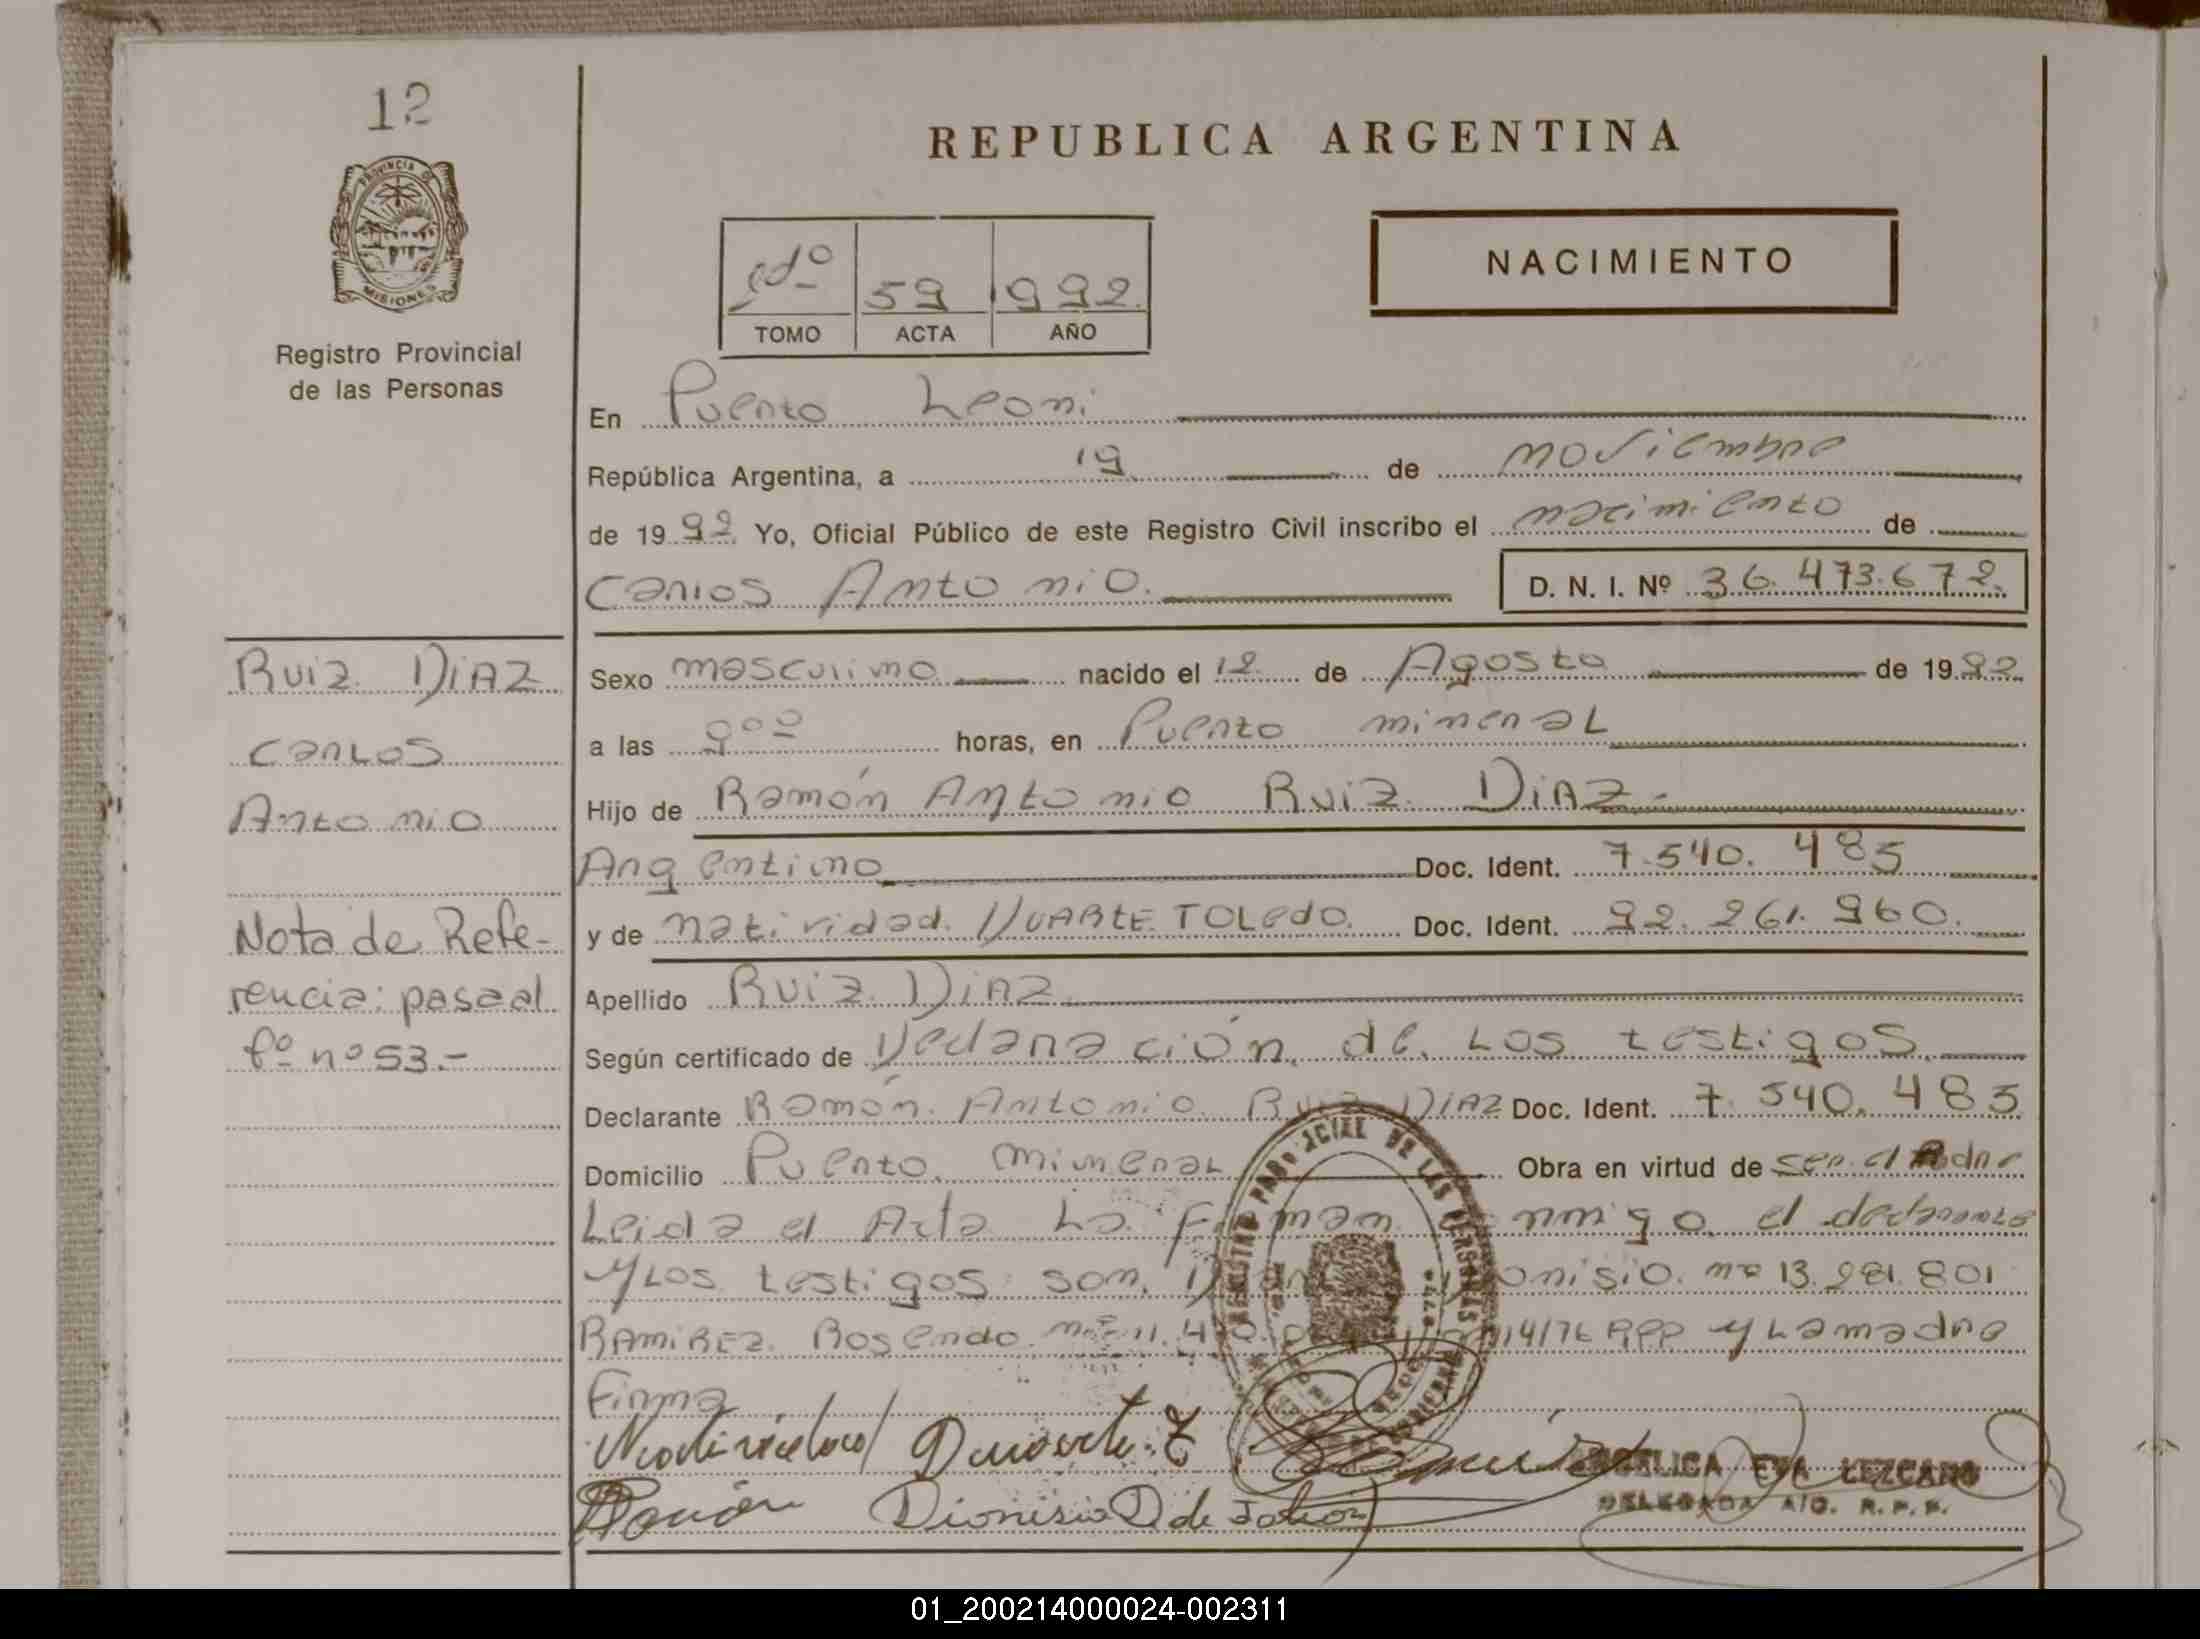 12
PROVINCIA DE
MISIONES
Registro Provincial
de las Personas
REPUBLICA ARGENTINA
NACIMIENTO
59 992
TOMO ACTA AÑO
En Puerto Leoni
República Argentina, a 19 de noviembre
de 1992 Yo, Oficial Público de este Registro Civil inscribo el nacimiento de
Carlos Antonio. D. N. I. Nº 36.473.672.
Sexo masculino nacido el 12 de Agosto de 1992
a las 9ºº horas, en Puerto mineral
Hijo de Ramón Antonio Ruiz Diaz -
Argentino Doc. Ident. 7.540.485
y de natividad DUARTE TOLEDO. Doc. Ident. 92.261.960.
Apellido Ruiz Diaz
Según certificado de Declaración de Los testigos.
Declarante Ramón Antonio Ruiz Diaz Doc. Ident. 7.540.485
Domicilio Puerto mineral Obra en virtud de ser el Padre
Leida el Acta La Firman conmigo el declarante
y Los testigos son. Dionisio. nº 13.281.801
RAMIREZ Rosendo nº 11.4 14/76 RPP y La madre
Firma
Natividad Duarte. T
Ramón Dionisio D de
ANGELICA EVA LEZCANO
DELEGADA A/C. R.P.P.
RUIZ DIAZ
CARLOS
Antonio
Nota de Refe-
rencia: pasa al
fº nº 53.-
01_200214000024-002311